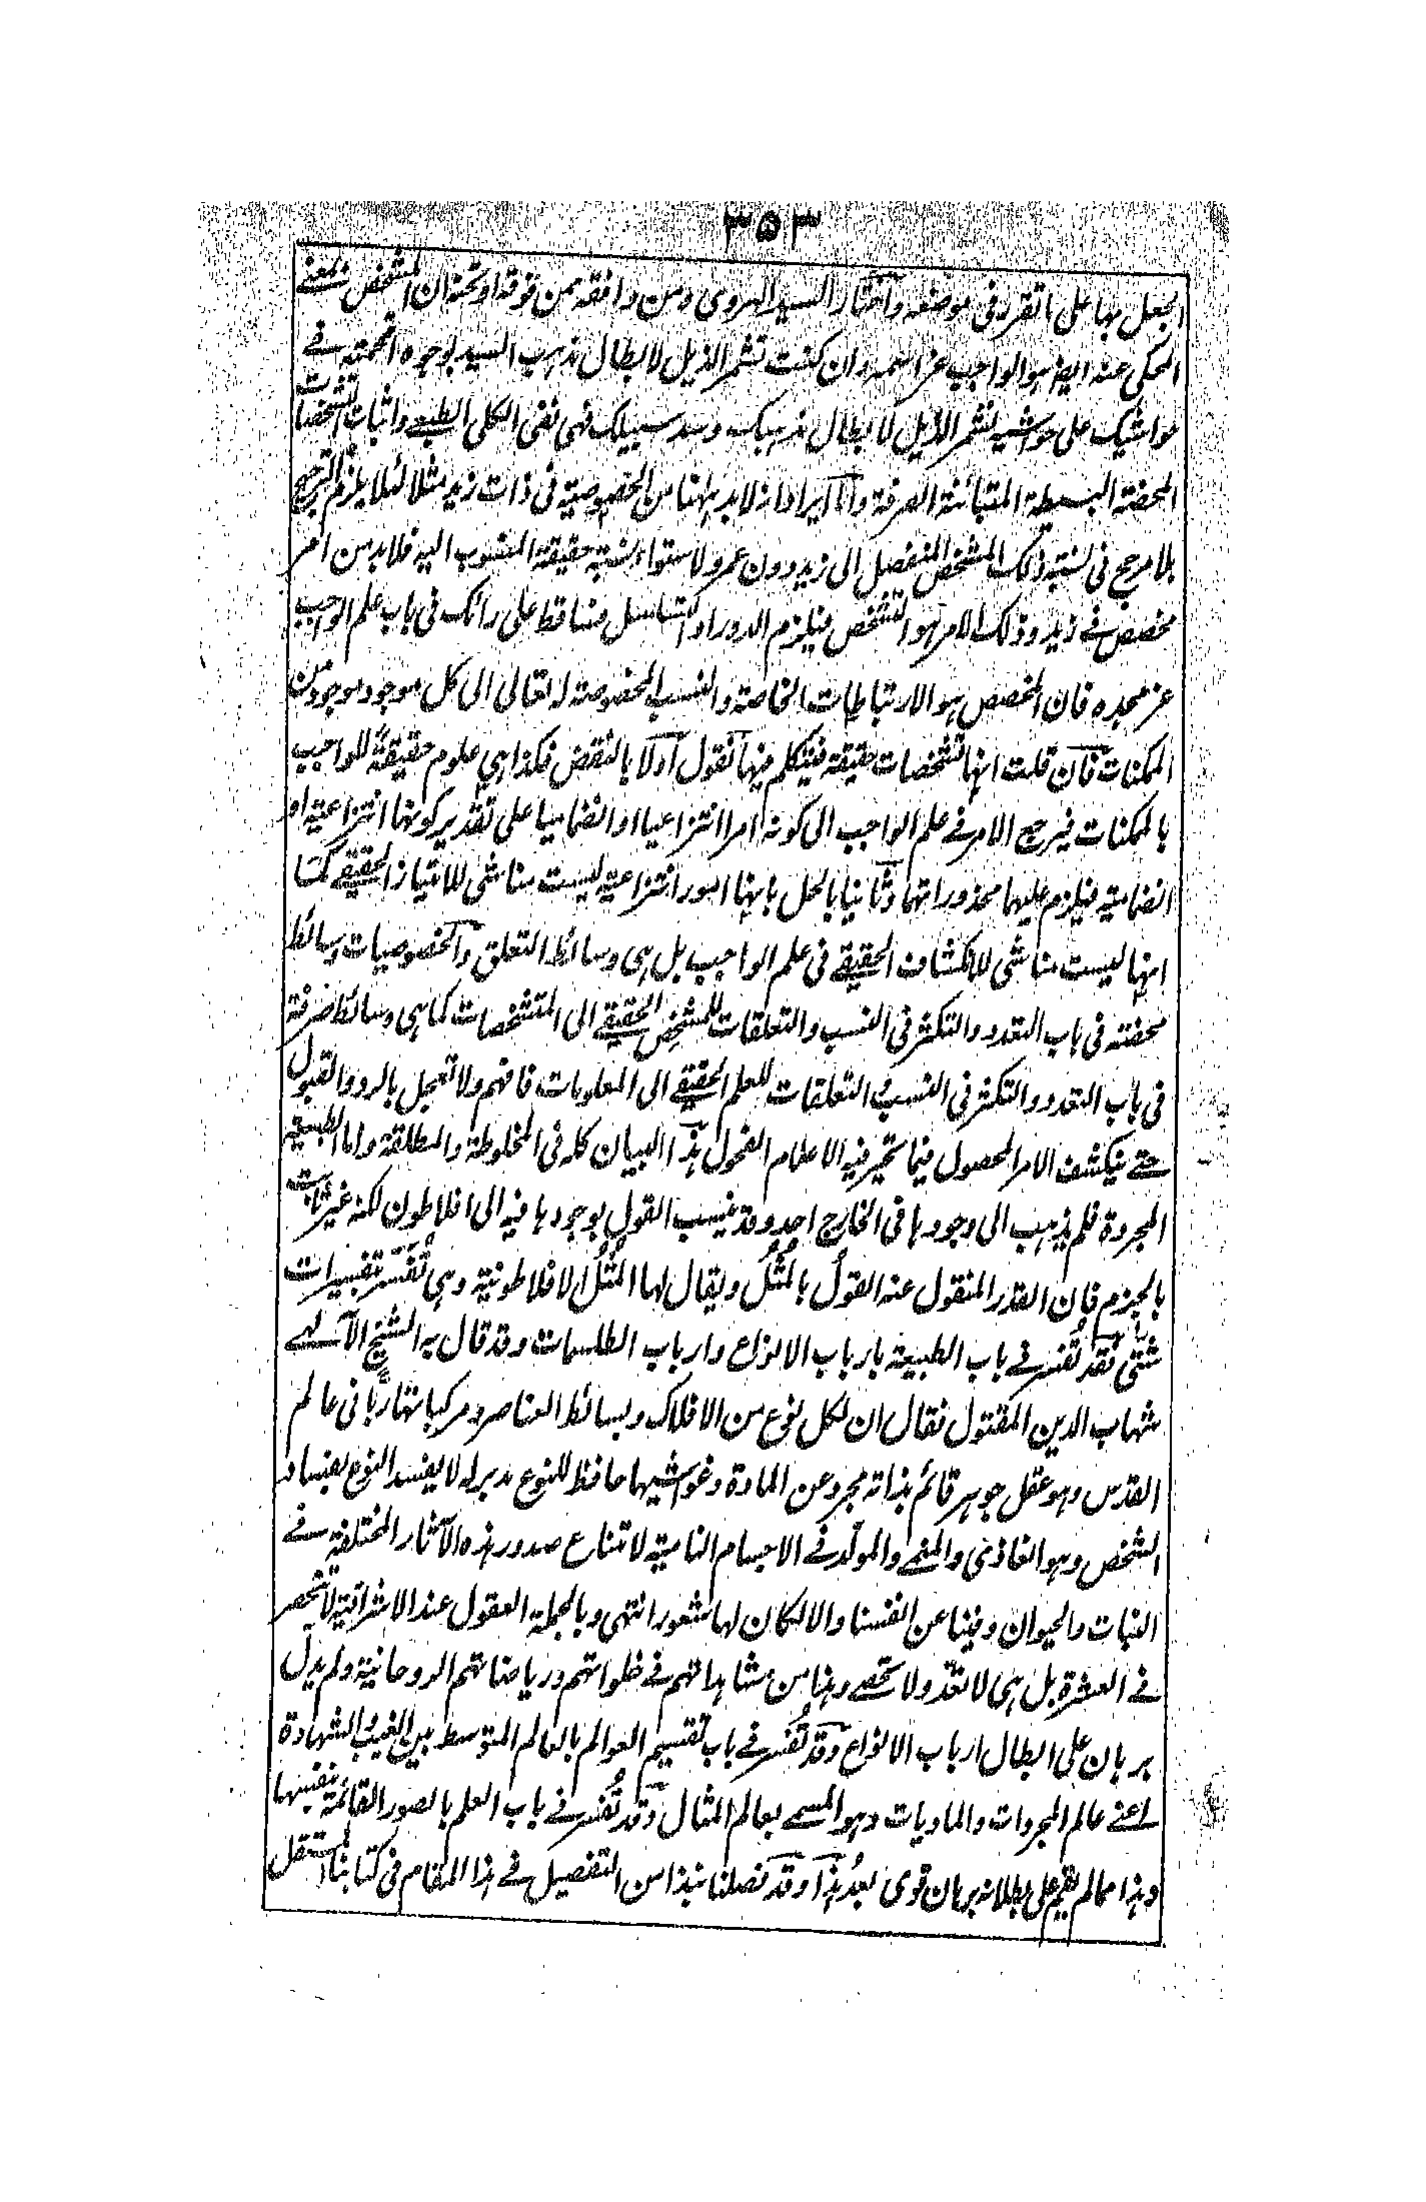 ٣٥٣
الجعل بها على ما تقرر فى موضعه واختار السيد الهروى ومن وافقه ممن فوقه او تحته ان المشخص بمعنى
المحكى عنه ايضا هو الواجب عز اسمه وان كنت تشمر الذيل لابطال مذهب السيد بوجوه اقحمتها فى
حواشيك على حواشيه نشمر الذيل لابطال مذهبك وسد سبيلك فهى نفى الكلى الطبعى واثبات التشخصات
المحضة البسيطة المتبائنة الصرفة واما ايراد انه لابد ههنا من الخصوصية فى ذات زيد مثلا لئلا يلزم الترجيح
بلا مرجح فى نسبة ذلك المشخص المنفصل الى زيد دون عمرو لاستواء نسبة حقيقة المنسوب اليه فلابد من امر
مخصص فى زيد وذلك الامر هو التشخص فيلزم الدور او التسلسل فساقط على رائك فى باب علم الواجب
عز مجده فان المخصص هو الارتباطات الخاصة والنسب المخصوصة له تعالى الى كل موجود موجود من
الممكنات فان قلت انها تشخصات حقيقة فيتكلم فيها نقول اولا بالنقض فكذا هى علوم حقيقة للواجب
بالممكنات فيرجع الامر فى علم الواجب الى كونه امرا انتزاعيا او انضماميا على تقدير كونها انتزاعية او
انضمامية فيلزم عليهما محذوراتهما وثانيا بالحل بانها امور انتزاعية ليست مناشى للامتياز الحقيقى كما
انها ليست مناشى للانكشاف الحقيقى فى علم الواجب بل هى وسائط التعلق والخصوصيات وسائط
محضة فى باب التعدد والتكثر فى النسب والتعلقات للمشخص الحقيقى الى المتشخصات كما هى وسائط صرفة
فى باب التعدد والتكثر فى النسب والتعلقات للعلم الحقيقى الى المعلومات فافهم ولا تعجل بالرد والقبول
حتى ينكشف الامر المحصول فيما تحير فيه الاعلام الفحول هذا البيان كله فى المخلوطة والمطلقة واما الطبيعة
المجردة فلم يذهب الى وجودها فى الخارج احد وقد ينسب القول بوجودها فيه الى افلاطون لكنه غير ثابت
بالجزم فان القدر المنقول عنه القول بالمُثُل ويقال لها المُثُل الافلاطونية وهى تُفَسَّر بتفسيرات
شتى فقد تُفسر فى باب الطبيعة بارباب الانواع وارباب الطلسمات وقد قال به الشيخ الآلهى
شهاب الدين المقتول فقال ان لكل نوع من الافلاك وبسائط العناصر ومركباتها ربًّا فى عالم
القدس وهو عقل جوهر قائم بذاته مجرد عن المادة وغواشيها حافظ للنوع مدبر له لا يفسد النوع بفساد
الشخص وهو الغاذى والمنمى والمولّد فى الاجسام النامية لامتناع صدور هذه الآثار المختلفة فى
النبات والحيوان وفينا عن انفسنا والا لكان لها شعور انتهى وبالجملة العقول عند الاشراقية لا تنحصر
فى العشرة بل هى لا تعدّ ولا تحصى وهذا من مشاهداتهم فى خلواتهم ورياضاتهم الروحانية ولم يدل
برهان على ابطال ارباب الانواع وقد تُفسر فى باب تقسيم العوالم بالعالم المتوسط بين الغيب والشهادة
اعنى عالم المجردات والماديات وهو المسمى بعالم المثال وقد تُفسر فى باب العلم بالصور القائمة بنفسها
وهذا مما لم يقم على بطلانه برهان قوى بعدُ هذا وقد فصلنا نبذا من التفصيل فى هذا المقام فى كتابنا المستقل